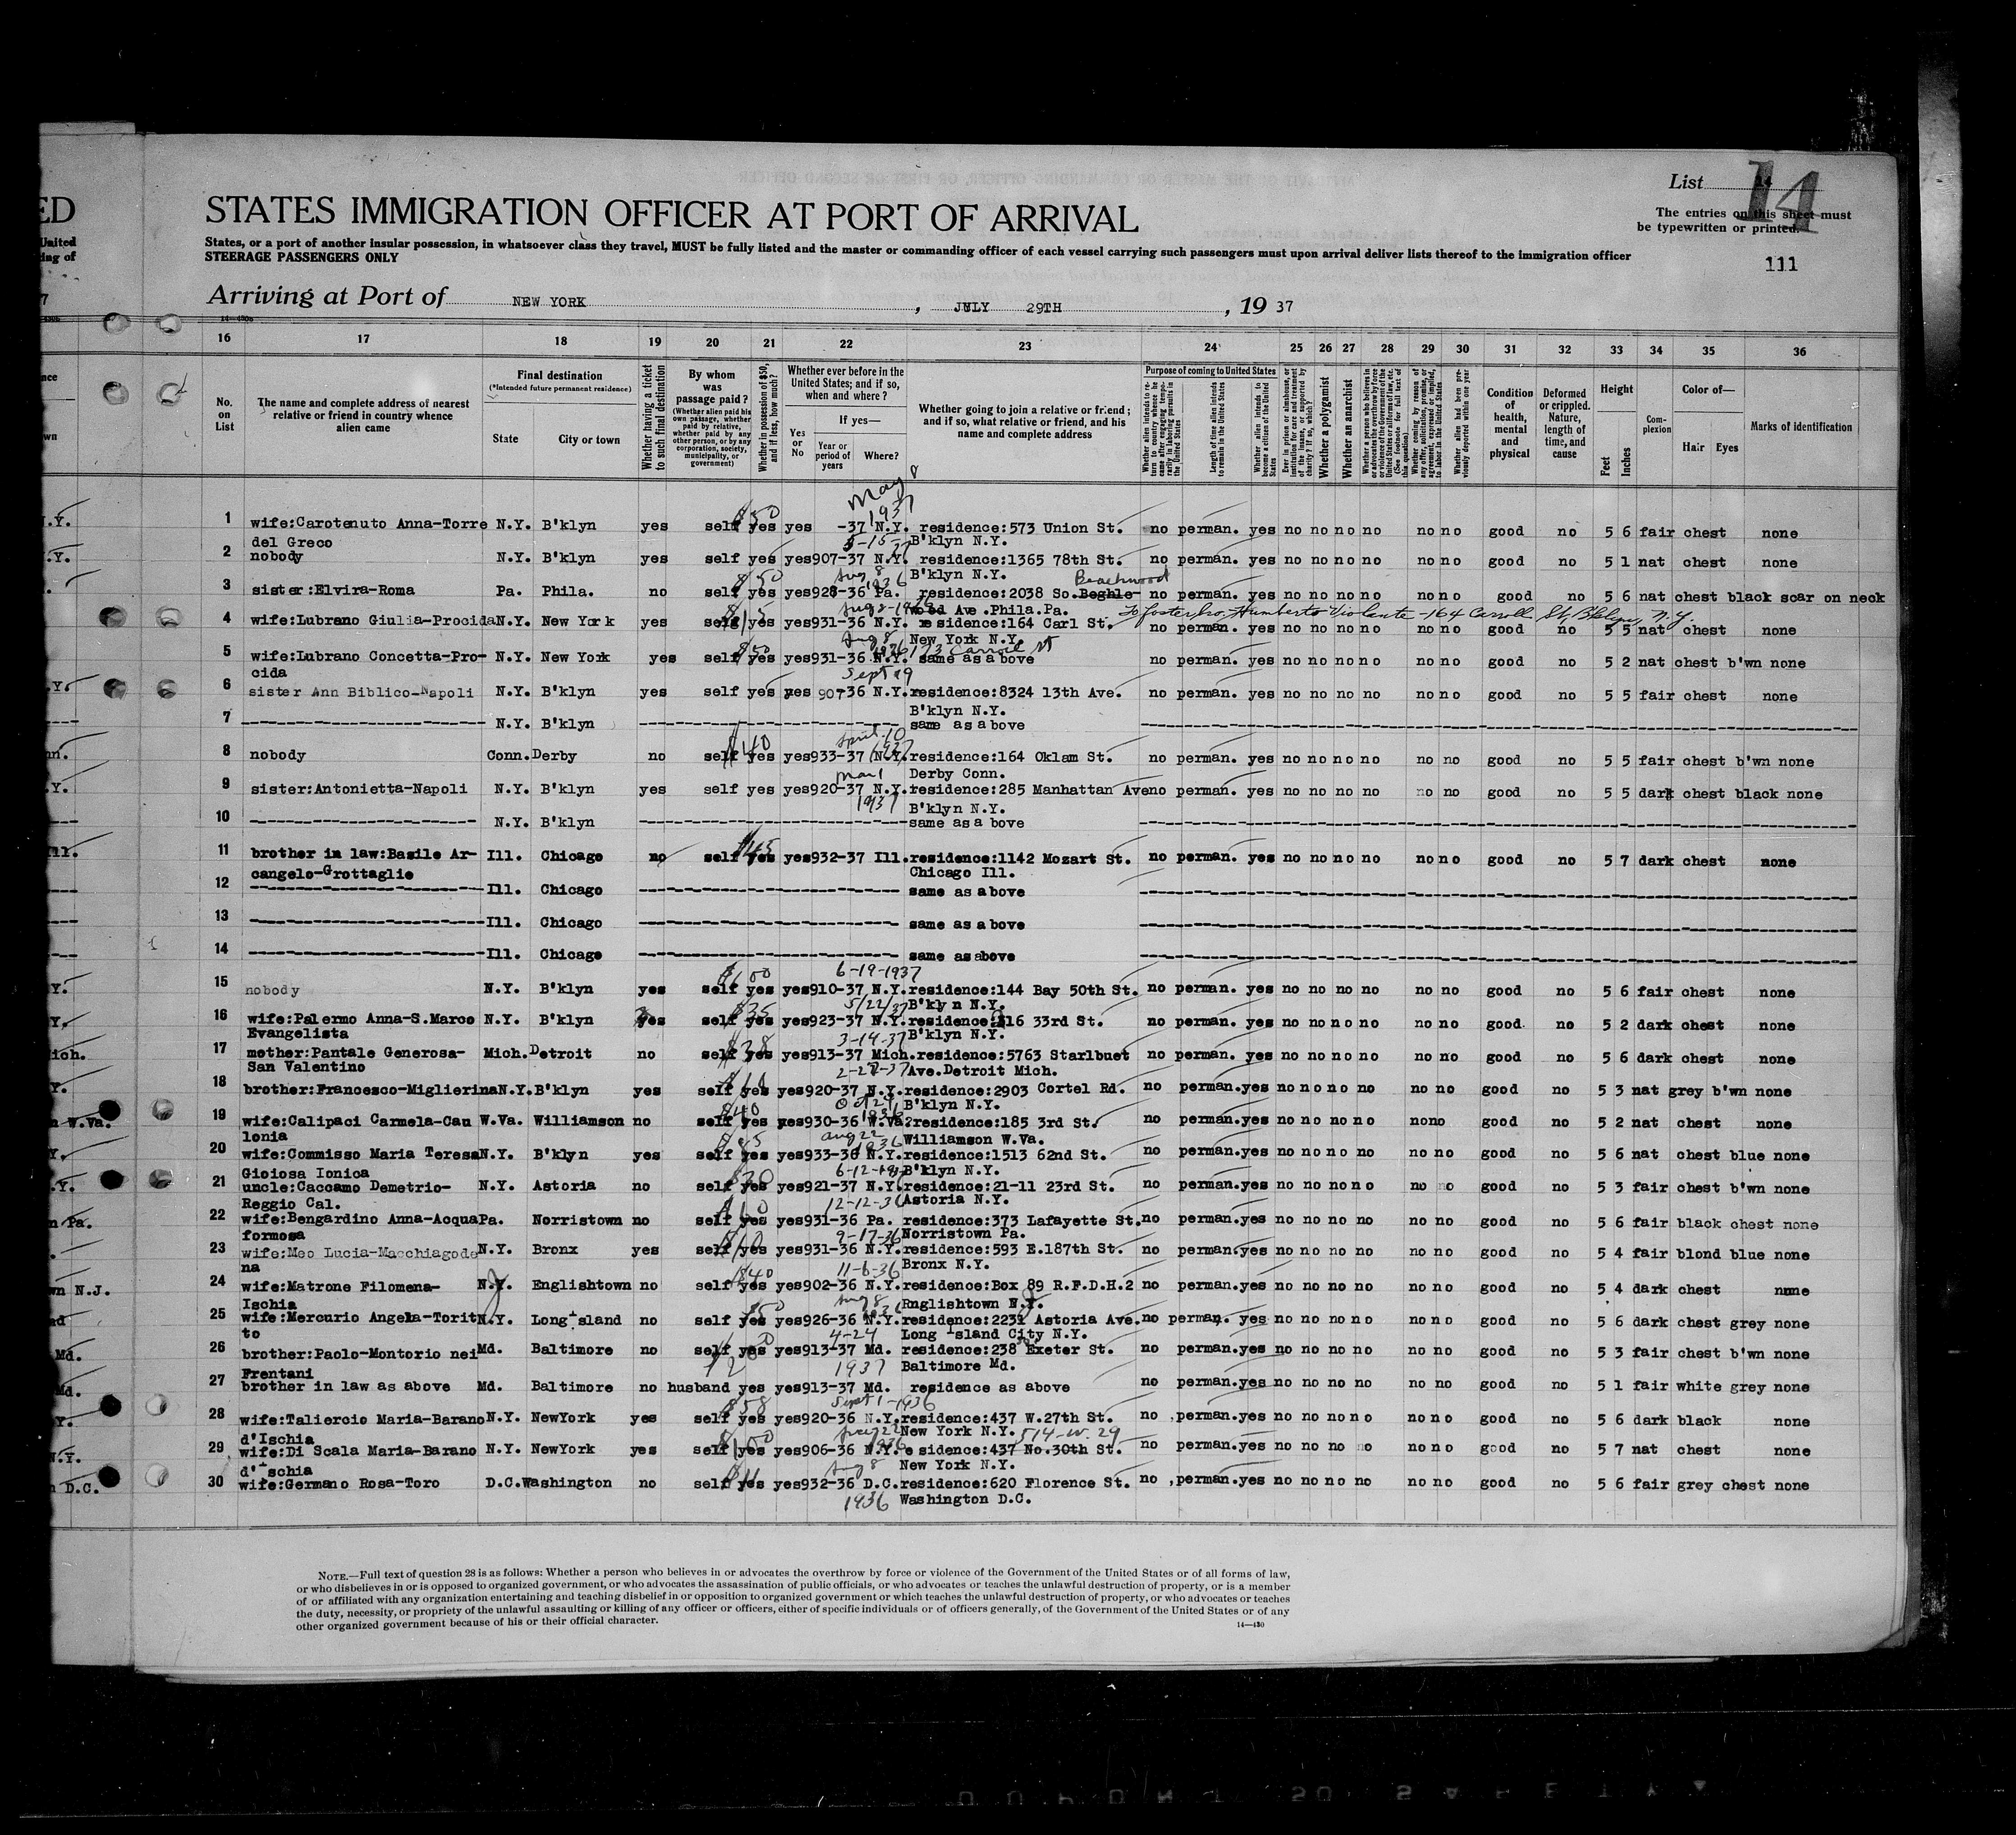 List 14
14
The entries on this sheet must
be typewritten or printed.
111
ED
STATES IMMIGRATION OFFICER AT PORT OF ARRIVAL
United
States, or a port of another insular possession, in whatsoever class they travel, MUST be fully listed and the master or commanding officer of each vessel carrying such passengers must upon arrival deliver lists thereof to the immigration officer
ing of
STEERAGE PASSENGERS ONLY
Arriving at Port of NEW YORK, JULY 29TH, 19 37
14—430b
16 17 18 19 20 21 22 23 24 25 26 27 28 29 30 31 32 33 34 35 36
No. on List
The name and complete address of nearest relative or friend in country whence alien came
Final destination
(*Intended future permanent residence)
State City or town
Whether having a ticket to such final destination
By whom was passage paid?
(Whether alien paid his own passage, whether paid by relative, whether paid by any other person, or by any corporation, society, municipality, or government)
Whether in possession of $50, and if less, how much?
Whether ever before in the United States; and if so, when and where?
Yes or No
If yes—
Year or period of years Where?
Whether going to join a relative or friend; and if so, what relative or friend, and his name and complete address
Purpose of coming to United States
Whether alien intends to return to country whence he came after engaging temporarily in laboring pursuits in the United States
Length of time alien intends to remain in the United States
Whether alien intends to become a citizen of the United States
Ever in prison or almshouse, or institution for care and treatment of the insane, or supported by charity? If so, which?
Whether a polygamist
Whether an anarchist
Whether a person who believes in or advocates the overthrow by force or violence of the Government of the United States or all forms of law, etc. (See footnote for full text of this question)
Whether coming by reason of any offer, solicitation, promise, or agreement, expressed or implied, to labor in the United States
Whether alien had been previously deported within one year
Condition of health, mental and physical
Deformed or crippled. Nature, length of time, and cause
Height
Feet Inches
Complexion
Color of—
Hair Eyes
Marks of identification
May 8
1937
1 wife:Carotenuto Anna-Torre N.Y. B'klyn yes self $50 yes yes -37 N.Y. residence:573 Union St. no perman. yes no no no no no no good no 5 6 fair chest none
del Greco B'klyn N.Y.
2 nobody N.Y. B'klyn yes self yes yes907-37 N.Y. residence:1365 78th St. no perman. yes no no no no no no good no 5 1 nat chest none
B'klyn N.Y.
Aug 8 1936 Beachwood
3 sister:Elvira-Roma Pa. Phila. no self $50 yes yes928-36 Pa. residence:2038 So.Beghle- no perman. yes no no no no no no good no 5 6 nat chest black scar on neck
wood Ave.Phila.Pa. To foster bro, Humberto Violante - 164 Carroll St, Bklyn, N.Y.
4 wife:Lubrano Giulia-Procida N.Y. New York yes self $15 yes yes931-36 N.Y. residence:164 Carl St. no perman. yes no no no no no no good no 5 5 nat chest none
New York N.Y.
Aug 8 1936 173 Carroll St
5 wife:Lubrano Concetta-Pro- N.Y. New York yes self $50 yes yes931-36 N.Y. same as above no perman. yes no no no no no no good no 5 2 nat chest b'wn none
cida Sept 19
6 sister Ann Biblico-Napoli N.Y. B'klyn yes self yes yes 907-36 N.Y. residence:8324 13th Ave. no perman. yes no no no no no no good no 5 5 fair chest none
B'klyn N.Y.
7 N.Y. B'klyn same as above
April 10 1937
8 nobody Conn. Derby no self $40 yes yes933-37 N.Y. residence:164 Oklam St. no perman. yes no no no no no no good no 5 5 fair chest b'wn none
Mar 1 Derby Conn.
9 sister:Antonietta-Napoli N.Y. B'klyn yes self yes yes920-37 N.Y. residence:285 Manhattan Ave no perman. yes no no no no no no good no 5 5 dark chest black none
1937 B'klyn N.Y.
10 N.Y. B'klyn same as above
11 brother in law:Basile Ar- Ill. Chicago no self $45 yes yes932-37 Ill. residence:1142 Mozart St. no perman. yes no no no no no no good no 5 7 dark chest none
cangelo-Grottaglie Chicago Ill.
12 Ill. Chicago same as above
13 Ill. Chicago same as above
14 Ill. Chicago same as above
6-19-1937
15 nobody N.Y. B'klyn yes self $100 yes yes910-37 N.Y. residence:144 Bay 50th St. no perman. yes no no no no no no good no 5 6 fair chest none
5/22/37 B'klyn N.Y.
16 wife:Palermo Anna-S.Marco N.Y. B'klyn yes self $35 yes yes923-37 N.Y. residence:816 33rd St. no perman. yes no no no no no no good no 5 2 dark chest none
Evangelista 3-14-37 B'klyn N.Y.
17 mother:Pantale Generosa- Mich. Detroit no self $28 yes yes913-37 Mich. residence:5763 Starlbuet no perman. yes no no no no no no good no 5 6 dark chest none
San Valentino 2-27-37 Ave.Detroit Mich.
18 brother:Francesco-Miglierina N.Y. B'klyn yes self yes yes920-37 N.Y. residence:2903 Cortel Rd. no perman. yes no no no no no no good no 5 3 nat grey b'wn none
Oct 21 1936 B'klyn N.Y.
19 wife:Calipaci Carmela-Cau W.Va. Williamson no self $40 yes yes930-36 W.Va. residence:185 3rd St. no perman. yes no no no no no no good no 5 2 nat chest none
lonia Aug 22 1936 Williamson W.Va.
20 wife:Commisso Maria Teresa N.Y. B'klyn yes self yes yes933-36 N.Y. residence:1513 62nd St. no perman. yes no no no no no no good no 5 6 nat chest blue none
Gioiosa Ionica B'klyn N.Y.
21 uncle:Caccamo Demetrio- N.Y. Astoria no self yes yes921-37 N.Y. residence:21-11 23rd St. no perman. yes no no no no no no good no 5 3 fair chest b'wn none
Reggio Cal. 12-12-36 Astoria N.Y.
22 wife:Bengardino Anna-Acqua Pa. Norristown no self yes yes931-36 Pa. residence:373 Lafayette St. no perman. yes no no no no no no good no 5 6 fair black chest none
formosa 9-17-36 Norristown Pa.
23 wife:Meo Lucia-Macchiagode N.Y. Bronx yes self yes yes931-36 N.Y. residence:593 E.187th St. no perman. yes no no no no no no good no 5 4 fair blond blue none
na 11-6-36 Bronx N.Y.
24 wife:Matrone Filomena- N.J. Englishtown no self $40 yes yes902-36 N.Y. residence:Box 89 R.F.D.H.2 no perman. yes no no no no no no good no 5 4 dark chest none
Ischia Aug 8 1936 Rnglishtown N.J.
25 wife:Mercurio Angela-Torit N.Y. Long Island no self $50 yes yes926-36 N.Y. residence:2231 Astoria Ave. no perman. yes no no no no no no good no 5 6 dark chest grey none
to 4-24 Long Island City N.Y.
26 brother:Paolo-Montorio nei Md. Baltimore no self yes yes913-37 Md. residence:238 Exeter St. no perman. yes no no no no no no good no 5 3 fair chest b'wn none
Frentani 1937 Baltimore Md.
27 brother in law as above Md. Baltimore no husband yes yes913-37 Md. residence as above no perman. yes no no no no no no good no 5 1 fair white grey none
Sept 1-1936
28 wife:Taliercio Maria-Barano N.Y. NewYork yes self $58 yes yes920-36 N.Y. residence:437 W.27th St. no perman. yes no no no no no no good no 5 6 dark black none
d'Ischia New York N.Y. 514-W. 29
29 wife:Di Scala Maria-Barano N.Y. NewYork yes self $100 yes yes906-36 N.Y. esidence:437 No.30th St. no perman. yes no no no no no no good no 5 7 nat chest none
d'Ischia Aug 8 New York N.Y.
30 wife:Germano Rosa-Toro D.C. Washington no self yes yes932-36 D.C. residence:620 Florence St. no perman. yes no no no no no no good no 5 6 fair grey chest none
1936 Washington D.C.
NOTE.—Full text of question 28 is as follows: Whether a person who believes in or advocates the overthrow by force or violence of the Government of the United States or of all forms of law,
or who disbelieves in or is opposed to organized government, or who advocates the assassination of public officials, or who advocates or teaches the unlawful destruction of property, or is a member
of or affiliated with any organization entertaining and teaching disbelief in or opposition to organized government or which teaches the unlawful destruction of property, or who advocates or teaches
the duty, necessity, or propriety of the unlawful assaulting or killing of any officer or officers, either of specific individuals or of officers generally, of the Government of the United States or of any
other organized government because of his or their official character.
14—430
DUPONT SAFETY